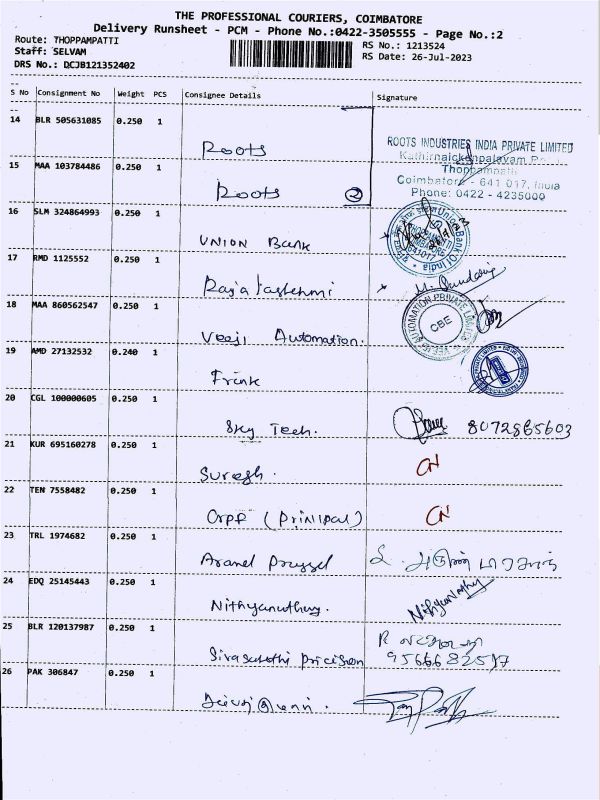 THE PROFESSIONAL COURIERS, COIMBATORE
Delivery Runsheet - PCM - Phone No.:0422-3505555 - Page No.:2
Route: THOPPAMPATTI
Staff: SELVAM
DRS No.: DCJB121352402
RS No.: 1213524
RS Date: 26-Jul-2023
S No Consignment No Weight PCS Consignee Details Signature
14 BLR 505631085 0.250 1
Roots
ROOTS INDUSTRIES INDIA PRIVATE LIMITED
Kathirnaickenpalayam
Thoppampatti
Coimbatore - 641 017, India
Phone: 0422 - 4235000
15 MAA 103784486 0.250 1
Roots 2
16 SLM 324864993 0.250 1
UNION Bank
Union Bank Of India
17 RMD 1125552 0.250 1
18 MAA 860562547 0.250 1
Veeji Automation.
AUTOMATION PRIVATE LIMITED
CBE
19 AMD 27132532 0.240 1
20 CGL 100000605 0.250 1
Sky Tech.
8072865603
21 KUR 695160278 0.250 1
Suresh.
CN
22 TEN 7558482 0.250 1
Crpf (Prinipal)
CN
23 TRL 1974682 0.250 1
24 EDQ 25145443 0.250 1
25 BLR 120137987 0.250 1
26 PAK 306847 0.250 1